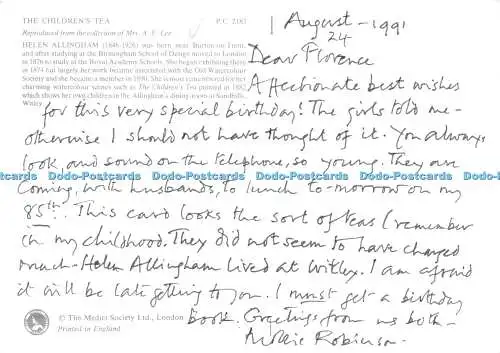 THE CHILDREN'S TEA P.C 200
Reproduced from the collection of Mrs. A. E. Lee
HELEN ALLINGHAM (1848-1926) was born near Burton-on-Trent,
and after studying at the Birmingham School of Design moved to London
in 1876 to study at the Royal Academy Schools. She began exhibiting there
in 1874 but largely her work became associated with the Old Watercolour
Society and she became a member in 1890. She is most remembered for her
charming watercolour scenes such as The Children's Tea painted in 1882
which shows her own children in the Allingham's dining-room at Sandhills,
Witley.
August - 1991
24
Dear Florence
Affectionate best wishes
for this very special birthday! The girls told me -
otherwise I should not have thought of it. You always
look, and sound on the telephone, so young. They are
coming, with husbands, to lunch to-morrow on my
85th. This card looks the sort of teas I remember
in my childhood. They did not seem to have changed
much - Helen Allingham lived at Witley. I am afraid
it will be late getting to you. I must get a birthday
book. Greetings from us both -
Mollie Robinson.
© The Medici Society Ltd., London
Printed in England
Dodo-Postcards Dodo-Postcards Dodo-Postcards Dodo-Postcards Dodo-Postcards